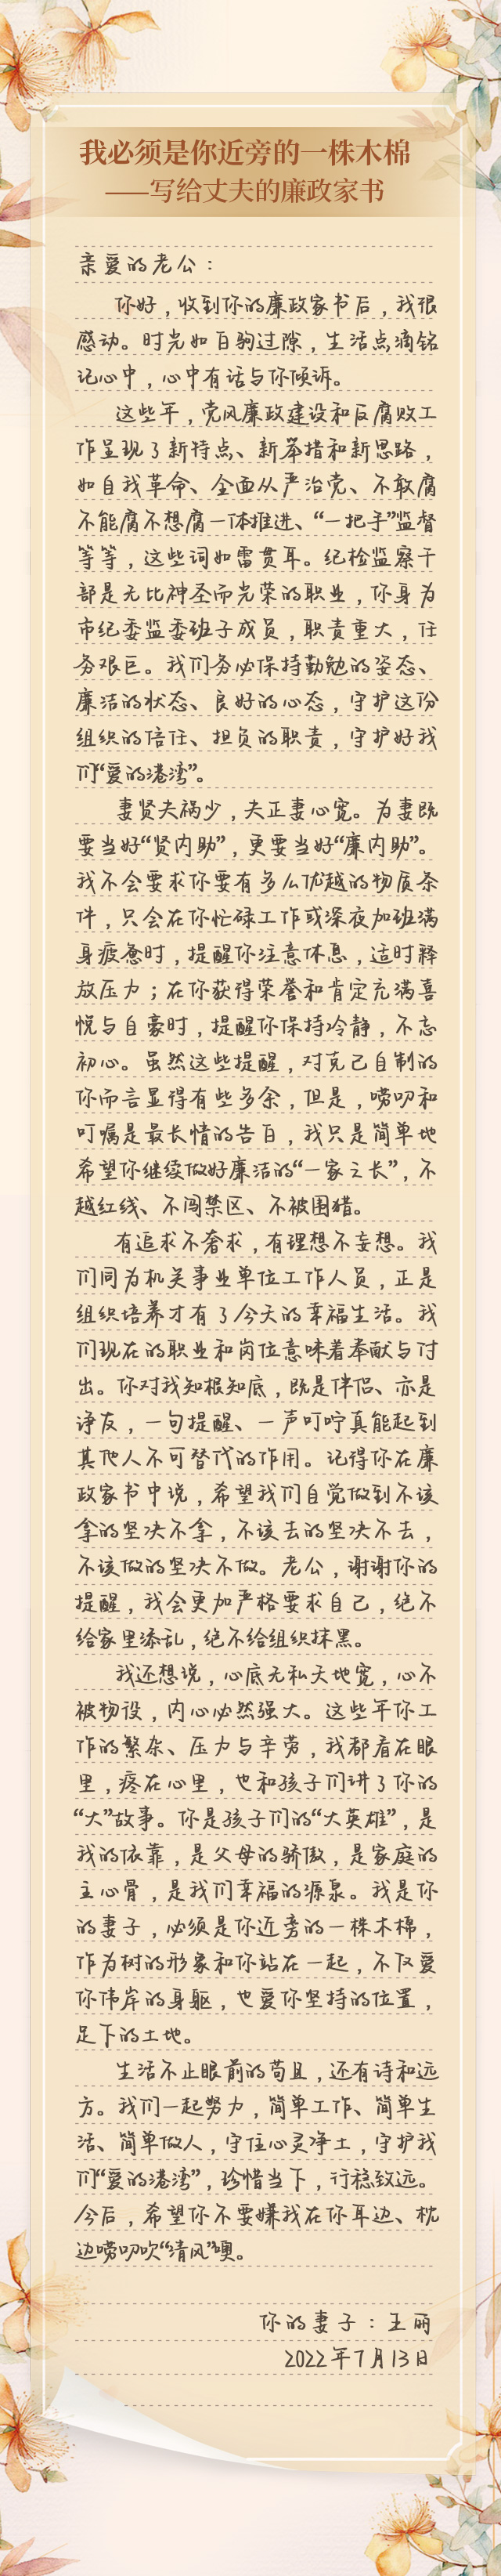 我必须是你近旁的一株木棉
——写给丈夫的廉政家书
亲爱的老公：
你好，收到你的廉政家书后，我很
感动。时光如白驹过隙，生活点滴铭
记心中，心中有话与你倾诉。
这些年，党风廉政建设和反腐败工
作呈现了新特点、新举措和新思路，
如自我革命、全面从严治党、不敢腐
不能腐不想腐一体推进、“一把手”监督
等等，这些词如雷贯耳。纪检监察干
部是无比神圣而光荣的职业，你身为
市纪委监委班子成员，职责重大，任
务艰巨。我们务必保持勤勉的姿态、
廉洁的状态、良好的心态，守护这份
组织的信任、担负的职责，守护好我
们“爱的港湾”。
妻贤夫祸少，夫正妻心宽。为妻既
要当好“贤内助”，更要当好“廉内助”。
我不会要求你要有多么优越的物质条
件，只会在你忙碌工作或深夜加班满
身疲惫时，提醒你注意休息，适时释
放压力；在你获得荣誉和肯定充满喜
悦与自豪时，提醒你保持冷静，不忘
初心。虽然这些提醒，对克己自制的
你而言显得有些多余，但是，唠叨和
叮嘱是最长情的告白，我只是简单地
希望你继续做好廉洁的“一家之长”，不
越红线、不闯禁区、不被围猎。
有追求不奢求，有理想不妄想。我
们同为机关事业单位工作人员，正是
组织培养才有了今天的幸福生活。我
们现在的职业和岗位意味着奉献与付
出。你对我知根知底，既是伴侣、亦是
诤友，一句提醒、一声叮咛真能起到
其他人不可替代的作用。记得你在廉
政家书中说，希望我们自觉做到不该
拿的坚决不拿，不该去的坚决不去，
不该做的坚决不做。老公，谢谢你的
提醒，我会更加严格要求自己，绝不
给家里添乱，绝不给组织抹黑。
我还想说，心底无私天地宽，心不
被物役，内心必然强大。这些年你工
作的繁杂、压力与辛劳，我都看在眼
里，疼在心里，也和孩子们讲了你的
“大”故事。你是孩子们的“大英雄”，是
我的依靠，是父母的骄傲，是家庭的
主心骨，是我们幸福的源泉。我是你
的妻子，必须是你近旁的一株木棉，
作为树的形象和你站在一起，不仅爱
你伟岸的身躯，也爱你坚持的位置，
足下的土地。
生活不止眼前的苟且，还有诗和远
方。我们一起努力，简单工作、简单生
活、简单做人，守住心灵净土，守护我
们“爱的港湾”，珍惜当下，行稳致远。
今后，希望你不要嫌我在你耳边、枕
边唠叨吹“清风”噢。
你的妻子：王丽
2022年7月13日